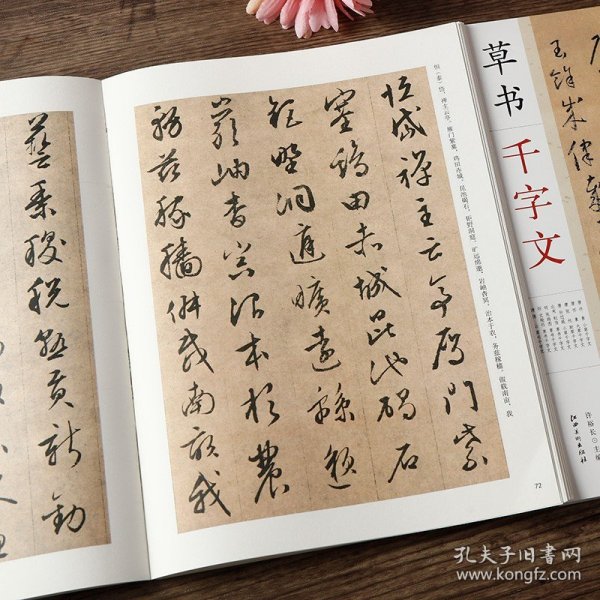 草书
千字文
许裕长 主编
江西美术出版社
恒（泰）岱，禅主云亭。雁门紫塞，鸡田赤城。昆池碣石，钜野洞庭。旷远绵邈，岩岫杳冥。治本于农，务兹稼穑。俶载南亩，我
恒岱禪主云亭雁門紫
塞鷄田赤城昆池碣石
鉅野洞庭曠遠綿邈
巖岫杳冥治本於農
務茲稼穡俶載南畝我
72
藝黍稷稅熟貢新勸
孔夫子旧书网
www.kongfz.com